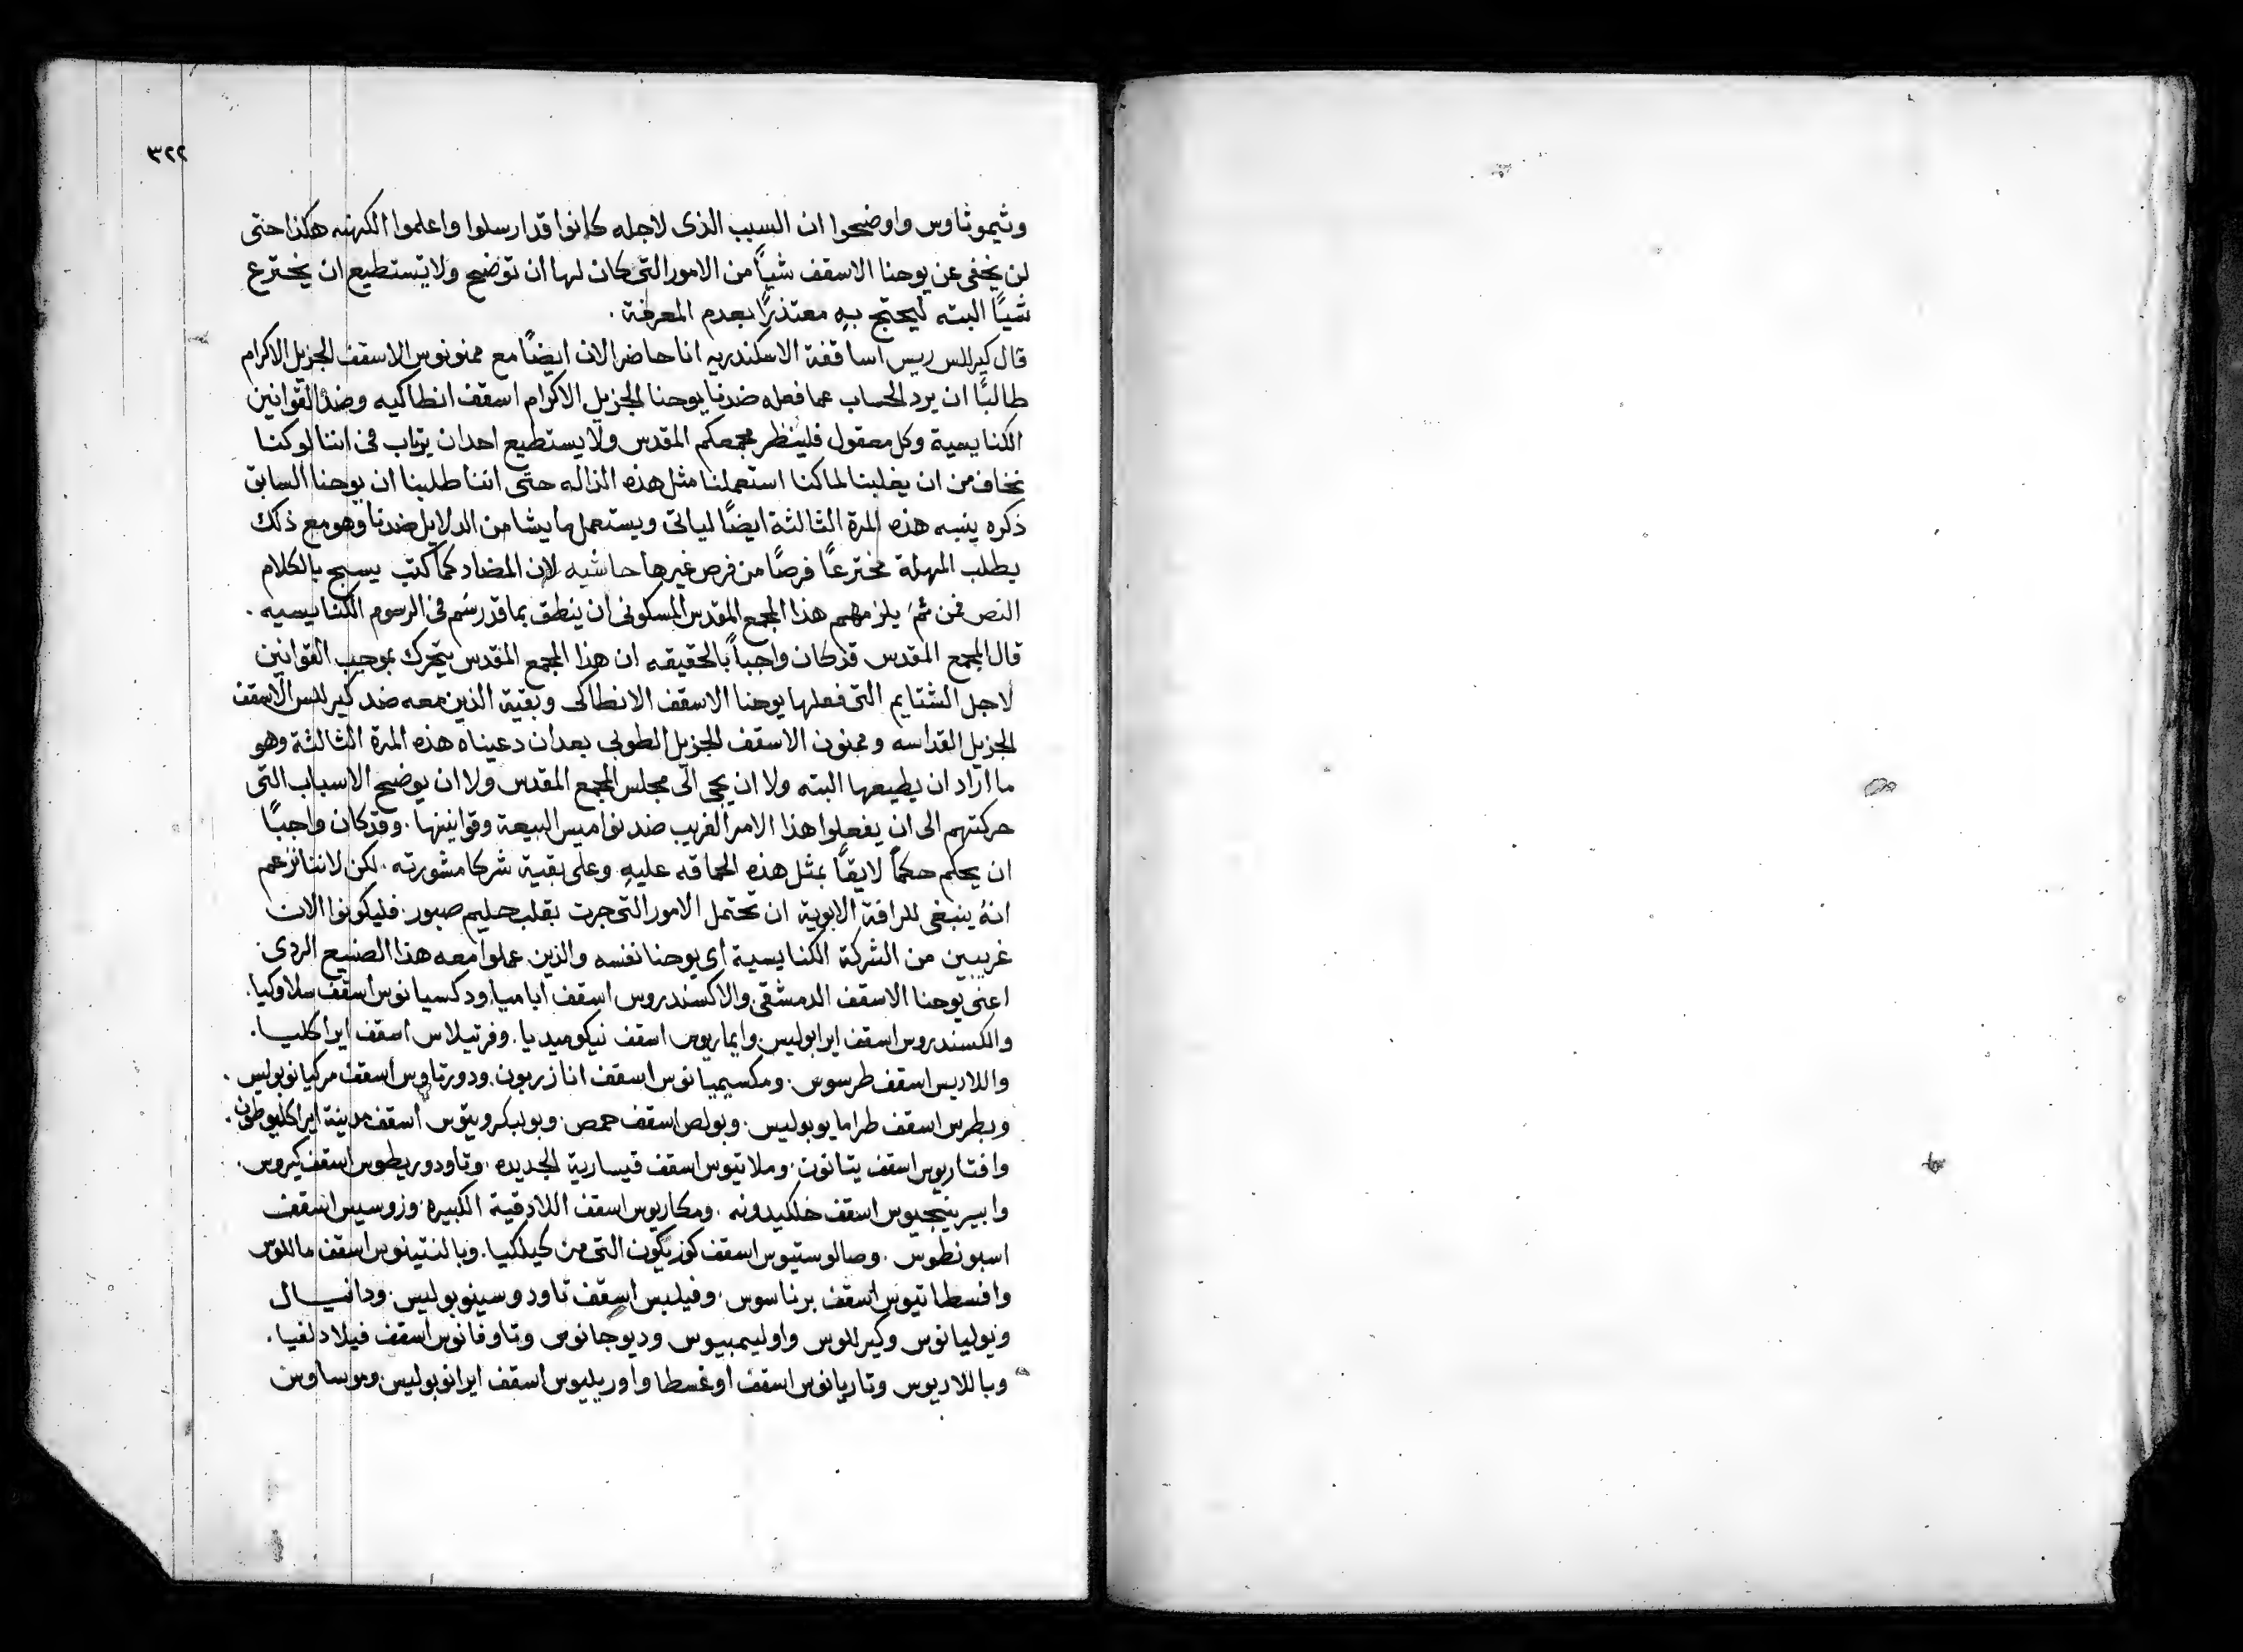 ٣٢٢
وثيموثاوس واوضحوا ان السبب الذى لاجله كانوا قد ارسلوا واعلموا الكهنه هكذا حتى
لن يخفى عن يوحنا الاسقف شياً من الامور التى كان لها ان توضح ولا يستطيع ان يخترع
شياً البته ليحتج به معتذرًا بعدم المعرفة .
قال كيرللس ريس اساقفة الاسكندريه انا حاضر الان ايضًا مع ممنونوس الاسقف الجزيل الاكرام
طالبًا ان يرد الحساب عما فعله ضدنا يوحنا الجزيل الاكرام اسقف انطاكيه وضد القوانين
الكنايسية وكل معقول فلينظر مجمعكم المقدس ولا يستطيع احد ان يرتاب فى اننا لو كنا
نخاف من ان يغلبنا لما كنا استعملنا مثل هذه الداله حتى اننا طلبنا ان يوحنا السابق
ذكره ينبه هذه المرة الثالثة ايضًا لياتى ويستعمل ما يشا من الدلايل ضدنا وهو مع ذلك
يطلب المهلة مخترعًا فرصًا من فرص غيرها حاشيه لان المضاد كما كتب يسبح بالكلام
النص فمن ثم يلزمهم هذا المجمع المقدس المسكونى ان ينطق بما قد رسم فى الرسوم الكنايسيه .
قال المجمع المقدس قد كان واجباً بالحقيقه ان هذا المجمع المقدس يتحرك بموجب القوانين
لاجل الشتايم التى فعلها يوحنا الاسقف الانطاكى وبقية الذين معه ضد كيرللس الاسقف
الجزيل القداسه وممنون الاسقف الجزيل الطوبى بعد ان دعيناه هذه المرة الثالثة وهو
ما اراد ان يطيعها البته ولا ان يجى الى مجلس المجمع المقدس ولا ان يوضح الاسباب التى
حركتهم الى ان يفعلوا هذا الامر الغريب ضد نواميس البيعة وقوانينها . وقد كان واجبًا
ان يحكم حكماً لايقًا بمثل هذه الحماقه عليهِ وعلى بقية شركا مشورته . لكن لاننا نزعم
انهُ ينبغى للرافة الابوية ان تحتمل الامور التى جرت بقلب حليم صبور . فليكونوا الان
غريبين من الشركة الكنايسية اى يوحنا نفسه والذين عملوا معه هذا الصنيع الردى
اعنى يوحنا الاسقف الدمشقى والاكسندروس اسقف اباميا ودكسيانوس اسقف سلاوكيا .
والكسندروس اسقف ايرابوليس . وايماريوس اسقف نيكوميديا . وفرتيلاس اسقف ايراكليا .
واللاديس اسقف طرسوس . ومكسيميانوس اسقف انازربون . ودورتاوس اسقف مركيانوبوليس .
وبطرس اسقف طرامايوبوليس . وبولص اسقف حمص . وبوليكرونيتوس اسقف مدينة ايراكليوطن .
وافتاريوس اسقف يتانون . وملاتيوس اسقف قيسارية الجديده . وتاودوريطوس اسقف كيروس .
وابيرينجيوس اسقف خلكيدونه . ومكاريوس اسقف اللادقية الكبيره . وزوسيس اسقف
اسبونطوس . وصالوستيوس اسقف كوزيكون التى من كيلكيا . وبالنتينوس اسقف ماللوس
وافسطاتيوس اسقف برناسوس . وفيلبس اسقف تاودوسينوبوليس . ودانيال
ويوليانوس وكيرللوس واوليمبيوس وديوجانوس وتاوفانوس اسقف فيلادلفيا .
وباللاديوس وتاريانوس اسقف اوغسطا واوريليوس اسقف ايرانوبوليس . وموساوس